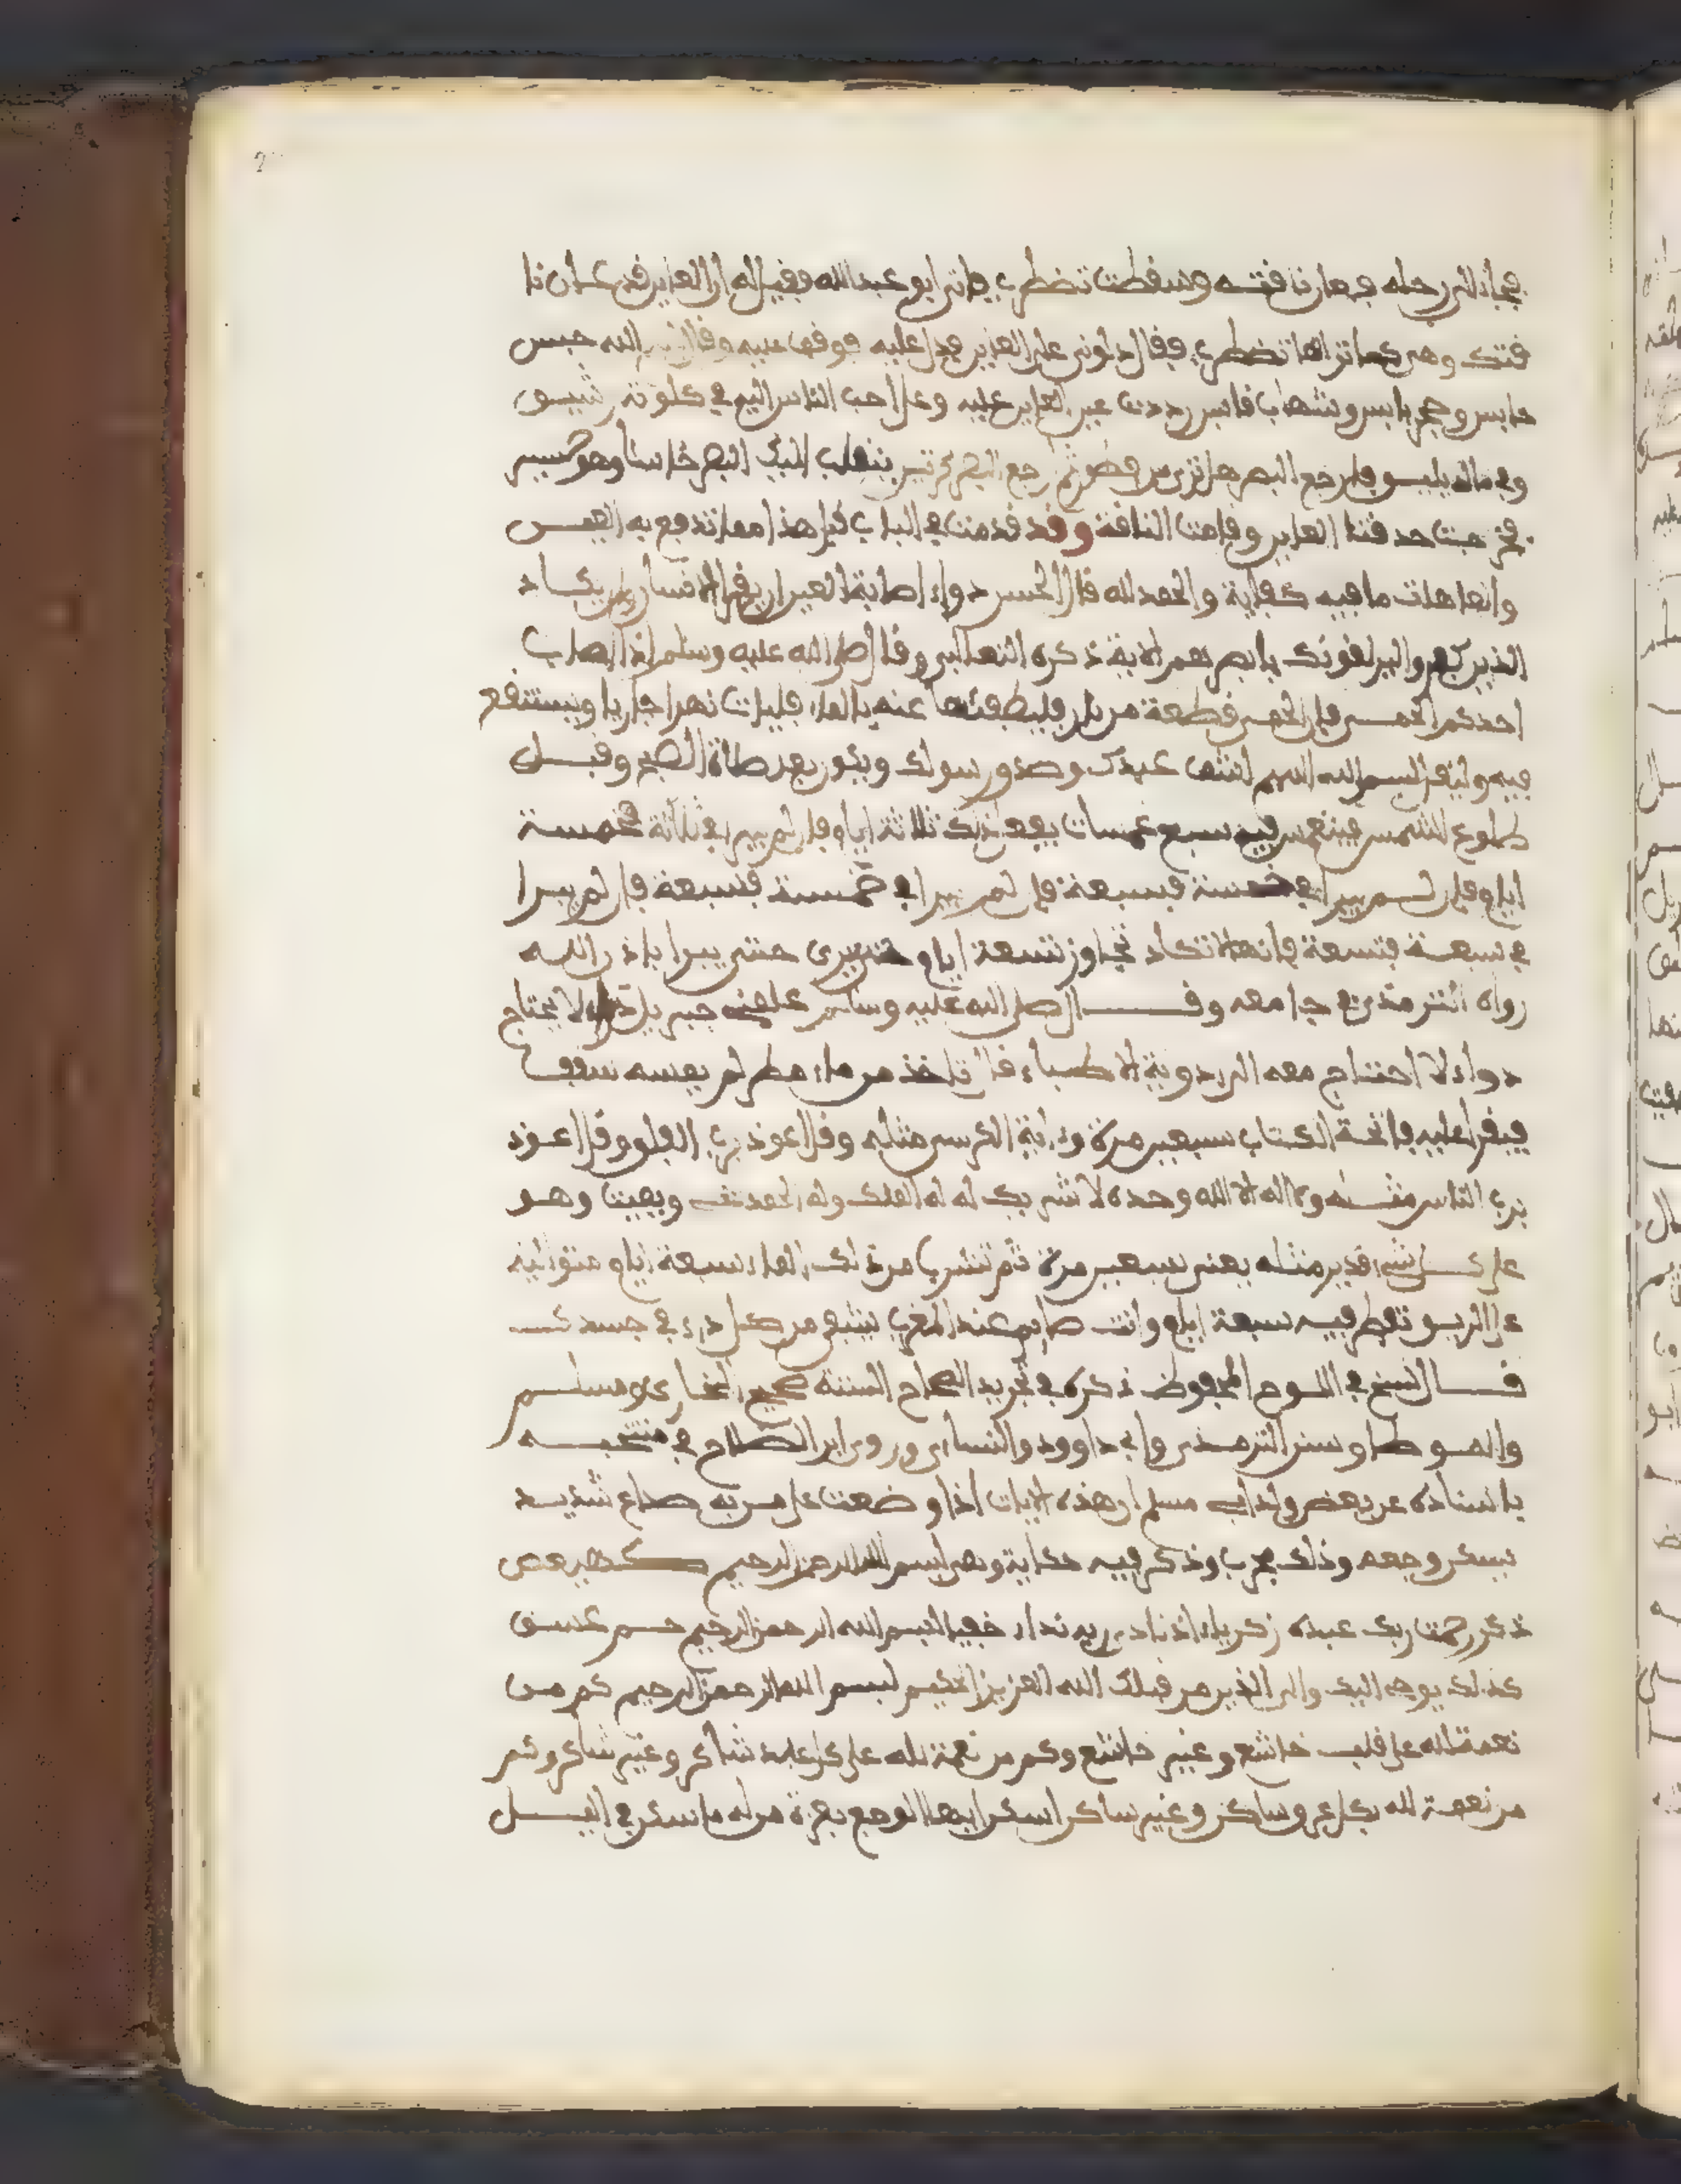 فجاء الى رحله فعان ناقته وسقطت تضطرب فاتى ابو عبد الله فقيل له ان العاين قد عان نا
قتك وهي كما تراها تضطرب فقال دلوني على العاين فدل عليه فوقف عليه وقال بسم الله حبس
حابس وحجر يابس وشهاب قابس رددت عين العاين عليه وعلى احب الناس اليه في كلوته رشيق
وفي ماله يليق فارجع البصر هل ترى من فطور ثم ارجع البصر كرتين ينقلب اليك البصر خاسئا وهو حسير
فخرجت حدقتا العاين وقامت الناقة وقد قدمت في الباب قبل هذا مما تدفع به العين
وانها هلت ما فيه كفاية والحمد لله قال الحسن دواء اصابة العين ان يقرا الانسان وان يكاد
الذين كفروا ليزلقونك بابصرهم الاية ذكره الثعالبي وقال صلى الله عليه وسلم اذا اصاب
احدكم الحمى فان الحمى قطعة من نار فليطفئها عنه بالماء فليات نهرا جاريا ويستنقع
فيه وليقل بسم الله اللهم اشف عبدك وصدق رسولك ويكون بعد صلاة الصبح وقبل
طلوع الشمس فينغمس فيه سبع غمسات يفعل ذلك ثلاثة ايام فان لم يبرا في ثلاثة فخمسة
ايام فان لم يبرا في خمسة فسبعة فان لم يبرا في خمسة فسبعة فان لم يبرا
في سبعة فتسعة فانها لا تكاد تجاوز تسعة ايام حتى يبرا باذن الله
رواه الترمذي في جامعه وقال صلى الله عليه وسلم علمني جبريل دواء لا يحتاج
دواء لا احتاج معه الى ادوية الاطباء قال تاخذ من ماء مطر لم يمسه سقف
فيقرا عليه فاتحة الكتاب سبعين مرة وءاية الكرسي مثله وقل اعوذ برب الفلق وقل اعوذ
برب الناس مثله ولا اله الا الله وحده لا شريك له له الملك وله الحمد يحي ويميت وهو
على كل شيء قدير مثله يعني سبعين مرة ثم تشرب من ذلك الماء سبعة ايام متوالية
على الريق تفطر فيه سبعة ايام وانت صايم عند المغرب يشفي من كل داء في جسدك
قال الشيخ في اللوح المحفوظ ذكره في تجريد الصحاح الستة صحيح البخاري ومسلم
والموطا وسنن الترمذي وابي داوود والنساءي وروى ابن الصلاح في منتخبه
باسناده عن بعض ولد ابي مسلم ان هذه الايات اذا وضعت على من به صداع شديد
يسكن وجعه وذلك مجرب وذكر فيه حكاية وهي بسم الله الرحمن الرحيم كهيعص
ذكر رحمت ربك عبده زكرياء اذ نادى ربه نداء خفيا بسم الله الرحمن الرحيم حم عسق
كذلك يوحي اليك والى الذين من قبلك الله العزيز الحكيم بسم الله الرحمن الرحيم كم من
نعمة لله على قلب خاشع وغير خاشع وكم من نعمة لله على كل عبد شاكر وغير شاكر وكم
من نعمة لله بكل عرق ساكن وغير ساكن اسكن ايها الوجع بعزة من له ما سكن في اليل